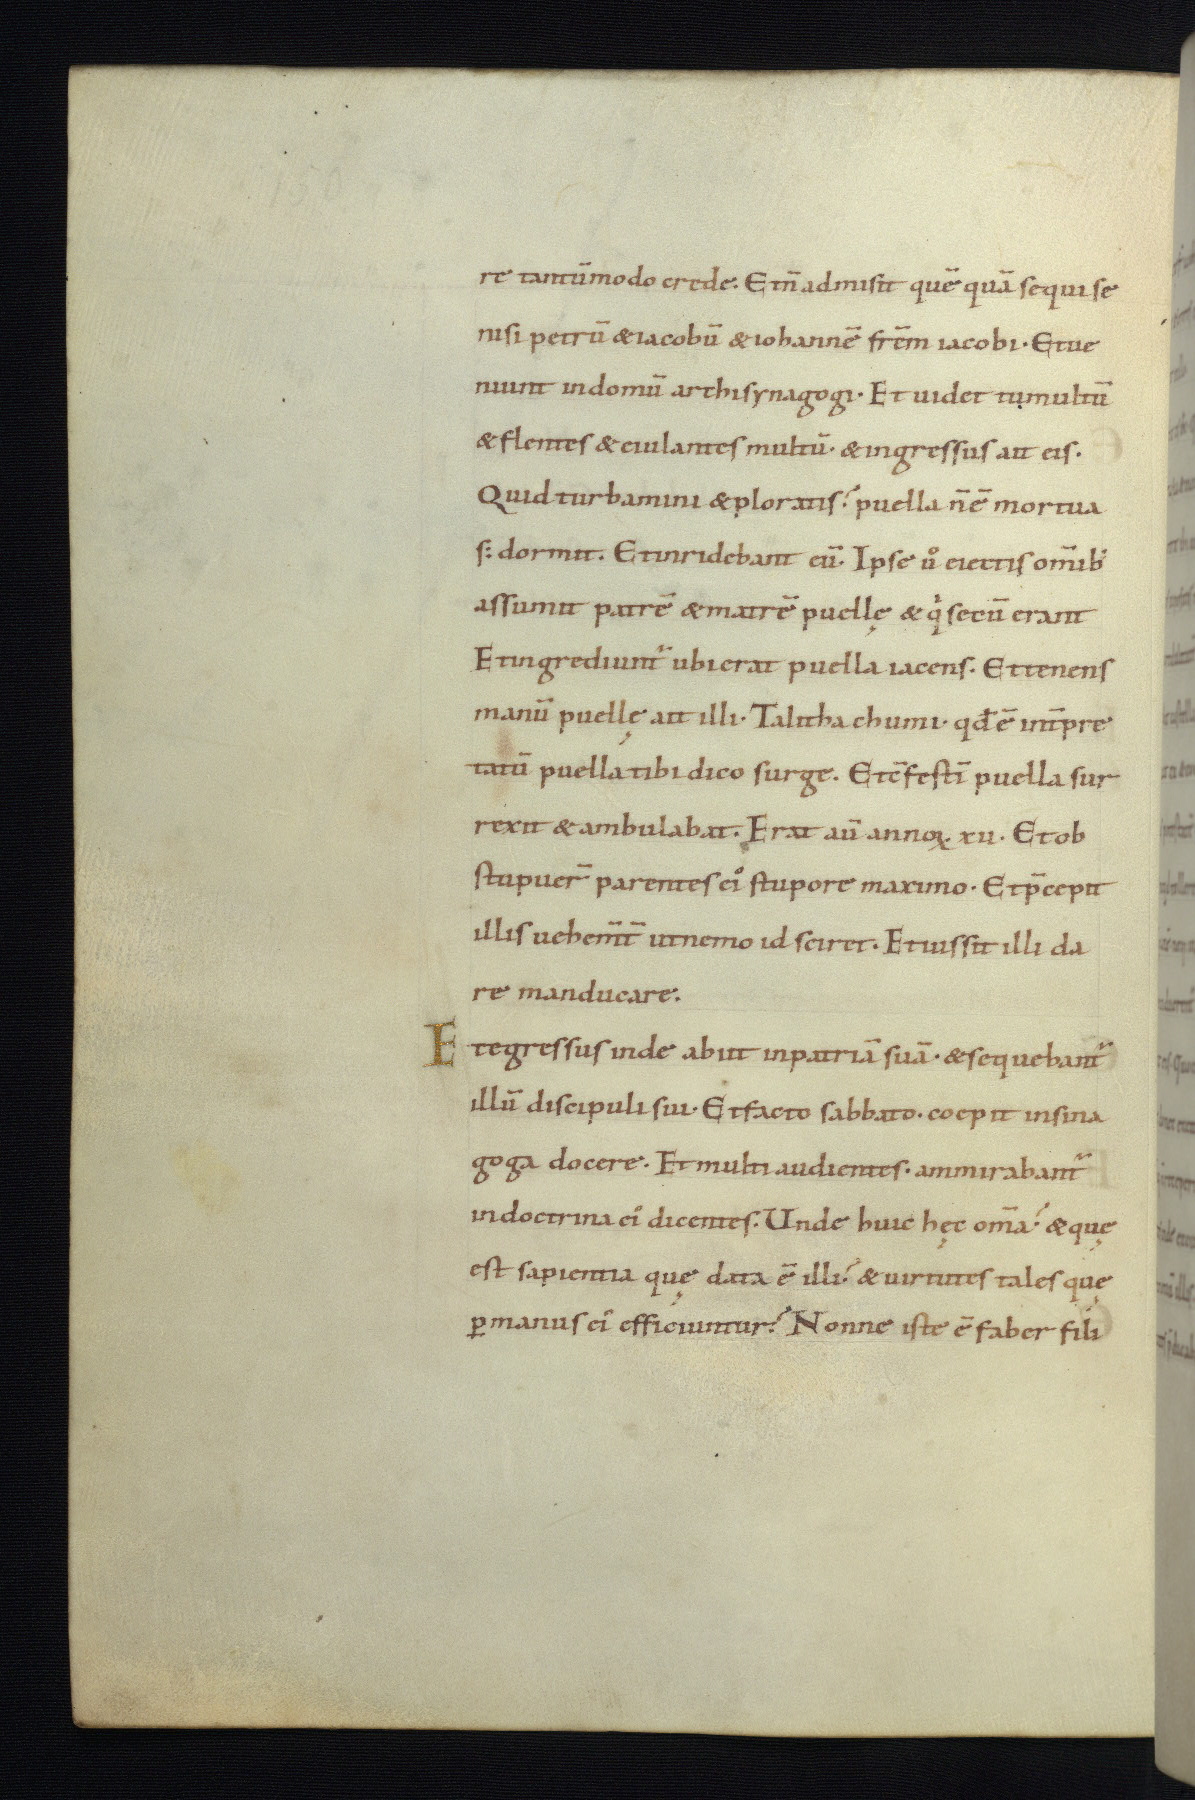 re tantūmodo crede. Et n̄ admisit quē quā sequi se
nisi petrū & iacobū & iohannē frēm iacobi. Et ue
niunt in domū archisynagogi. Et uidet tumultū
& flentes & eiulantes multū. & ingressus ait eis.
Quid turbamini & ploratis? puella n̄ ē mortua
s; dormit. Et inridebant eū. Ipse u͛o eiectis om̄ib;
assumit patrē & matrē puellę & q͛ secū erant
Et ingrediunt᷑ ubi erat puella iacens. Et tenens
manū puellę ait illi. Talitha chumi. qđ ē int̄pre
tatū puella tibi dico surge. Et c̄festī puella sur
rexit & ambulabat. Erat aū annoꝝ xii. Et ob
stupuer̄ parentes ei᷒ stupore maximo. Et p̄cepit
illis uehem̄t̄ ut nemo id sciret. Et iussit illi da
re manducare.
Et egressus inde abiit in patriā suā. & sequebant᷑
illū discipuli sui. Et facto sabbato. coepit in sina
goga docere. Et multi audientes. ammirabant᷑
in doctrina ei᷒ dicentes. Unde huic hęc om̄a? & quę
est sapientia quę data ē illi? & uirtutes tales quę
ꝑ manus ei᷒ efficiuntur? Nonne iste ē faber fili᷒